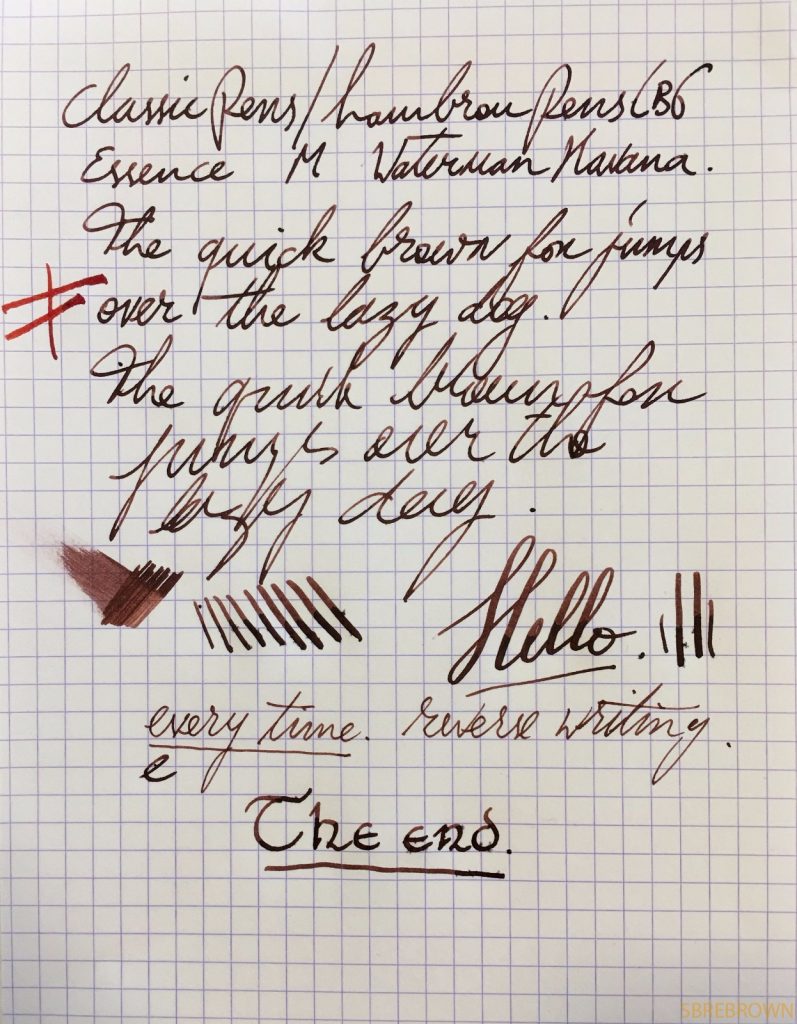 Classic Pens/LambrouPens LB6
Essence M Waterman Havana.
The quick brown fox jumps
over the lazy dog.
The quick brown fox
jumps over the
lazy dog.
Hello.
every time. reverse writing.
e
The end.
SBREBROWN